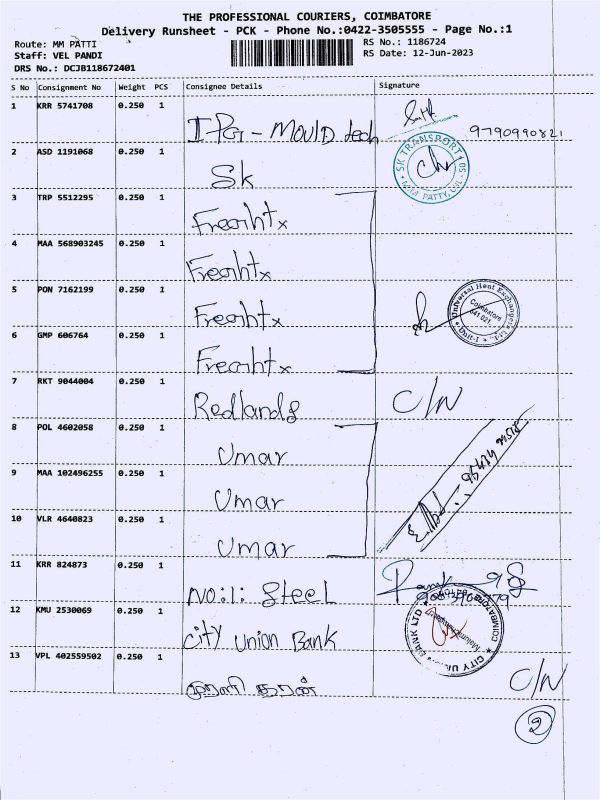 THE PROFESSIONAL COURIERS, COIMBATORE
Delivery Runsheet - PCK - Phone No.:0422-3505555 - Page No.:1
Route: MM PATTI RS No.: 1186724
Staff: VEL PANDI RS Date: 12-Jun-2023
DRS No.: DCJB118672401
S No Consignment No Weight PCS Consignee Details Signature
1 KRR 5741708 0.250 1 Mould tech 9790990821
2 ASD 1191068 0.250 1 Sk SK TRANSPORT
3 TRP 5512295 0.250 1
4 MAA 568903245 0.250 1
5 PON 7162199 0.250 1 Universal Heat Exchangers Ltd. Unit-I Coimbatore 641 021.
6 GMP 606764 0.250 1
7 RKT 9044004 0.250 1 Redlands C/N
8 POL 4602058 0.250 1 Umar
9 MAA 102496255 0.250 1 Umar
10 VLR 4640823 0.250 1 Umar
11 KRR 824873 0.250 1 No:1: Steel
12 KMU 2530069 0.250 1 City Union Bank CITY UNION BANK LTD COIMBATORE
13 VPL 402559502 0.250 1 C/N
2